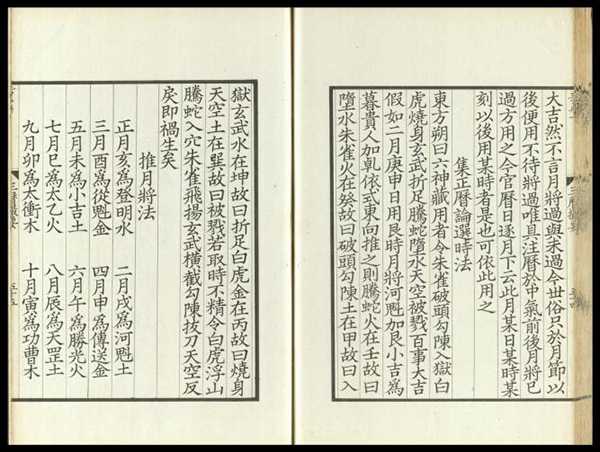 大吉然不言月將過與未過今世俗只於月節以
後便用不待將過唯具注曆於中氣前後月將已
過方用之今官曆日逐月下云此月某日某時某
刻以後用某時者是也可依此用之
集正曆論選時法
東方朔曰六神藏用者令朱雀破頭勾陳入獄白
虎燒身玄武折足騰蛇墮水天空被戮百事大吉
假如二月庚申日用艮時月將河魁加艮小吉爲
暮貴人加乹依式東向推之則騰蛇火在壬故曰
墮水朱雀火在癸故曰破頭勾陳土在甲故曰入
獄玄武水在坤故曰折足白虎金在丙故曰燒身
天空土在巽故曰被戮若取時不精令白虎浮山
騰蛇入穴朱雀飛揚玄武橫截勾陳拔刀天空反
戾即禍生矣
推月將法
正月亥爲登明水　二月戌爲河魁土
三月酉爲從魁金　四月申爲傳送金
五月未爲小吉土　六月午爲勝光火
七月巳爲太乙火　八月辰爲天罡土
九月卯爲太衝木　十月寅爲功曹木